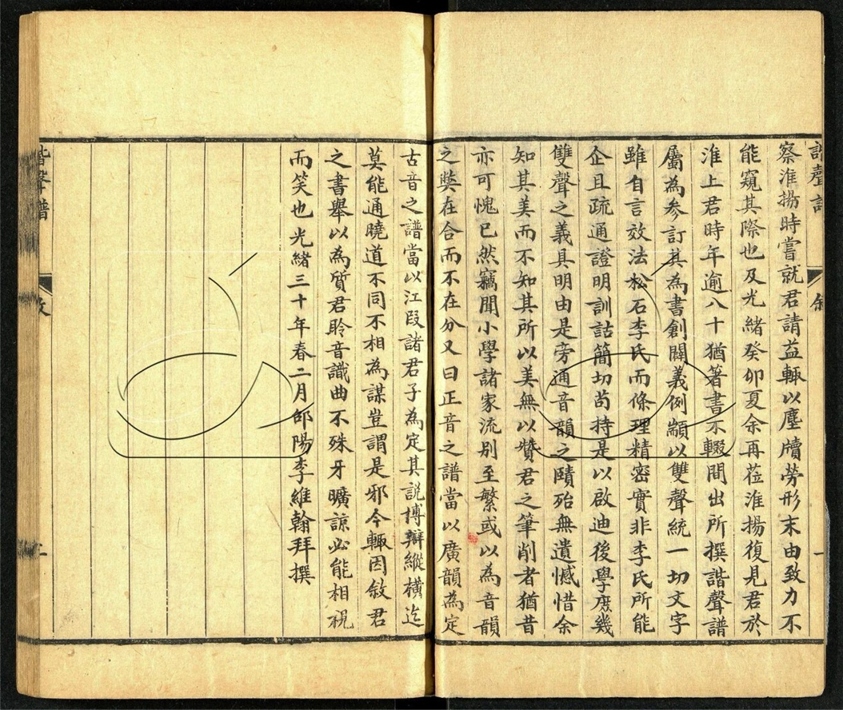 察淮揚時嘗就君請益輒以塵牘勞形末由致力不
能窺其際也及光緒癸卯夏余再莅淮揚復見君於
淮上君時年逾八十猶著書不輟間出所撰諧聲譜
屬為參訂其為書創闢義例顓以雙聲統一切文字
雖自言放法松石李氏而條理精密實非李氏所能
企且疏通證明訓詁簡切苟持是以啟迪後學庶幾
雙聲之義具明由是旁通音韻之賾殆無遺憾惜余
知其美而不知其所以美無以贊君之筆削者猶昔
亦可愧已然竊聞小學諸家流別至繁或以為音韻
之獘在合而不在分又曰正音之譜當以廣韻為定
古音之譜當以江段諸君子為定其說博辯縱橫迄
莫能通曉道不同不相為謀豈謂是邪今輒因敘君
之書舉以為質君聆音識曲不殊牙曠諒必能相視
而笑也光緒三十年春二月郃陽李維翰拜撰
諧聲譜
二